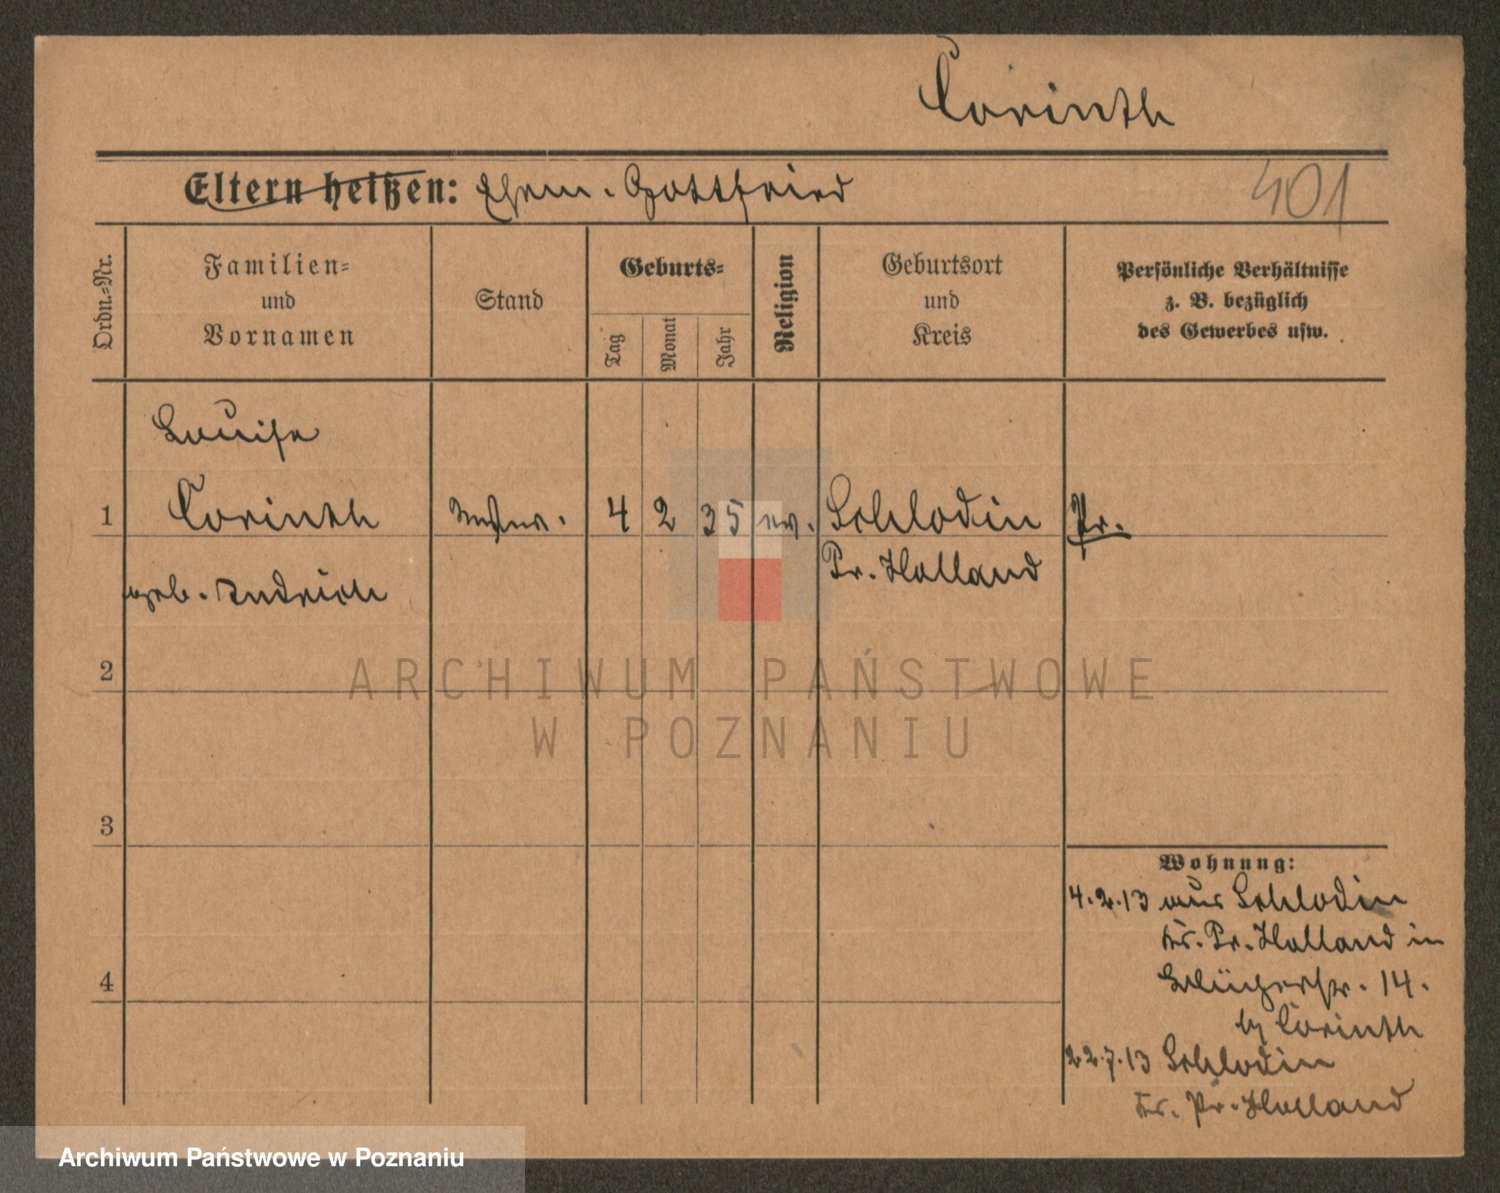 Corinth
Eltern heißen: Ehem. Gottfried
401
Ordn.=Nr.
Familien=
und
Vornamen
Stand
Geburts=
Tag
Monat
Jahr
Religion
Geburtsort
und
Kreis
Persönliche Verhältnisse
z. B. bezüglich
des Gewerbes usw.
Louise
1 Corinth 4 2 35 ev. Schlodin Pr.
Pr. Holland
geb. Indrich
2
3
4
Wohnung:
4.2.13 aus Schlodin
Kr. Pr. Holland in
Blücherstr. 14.
by Corinth
22.7.13 Schlodin
Kr. Pr. Holland
ARCHIWUM PAŃSTWOWE
W POZNANIU
Archiwum Państwowe w Poznaniu